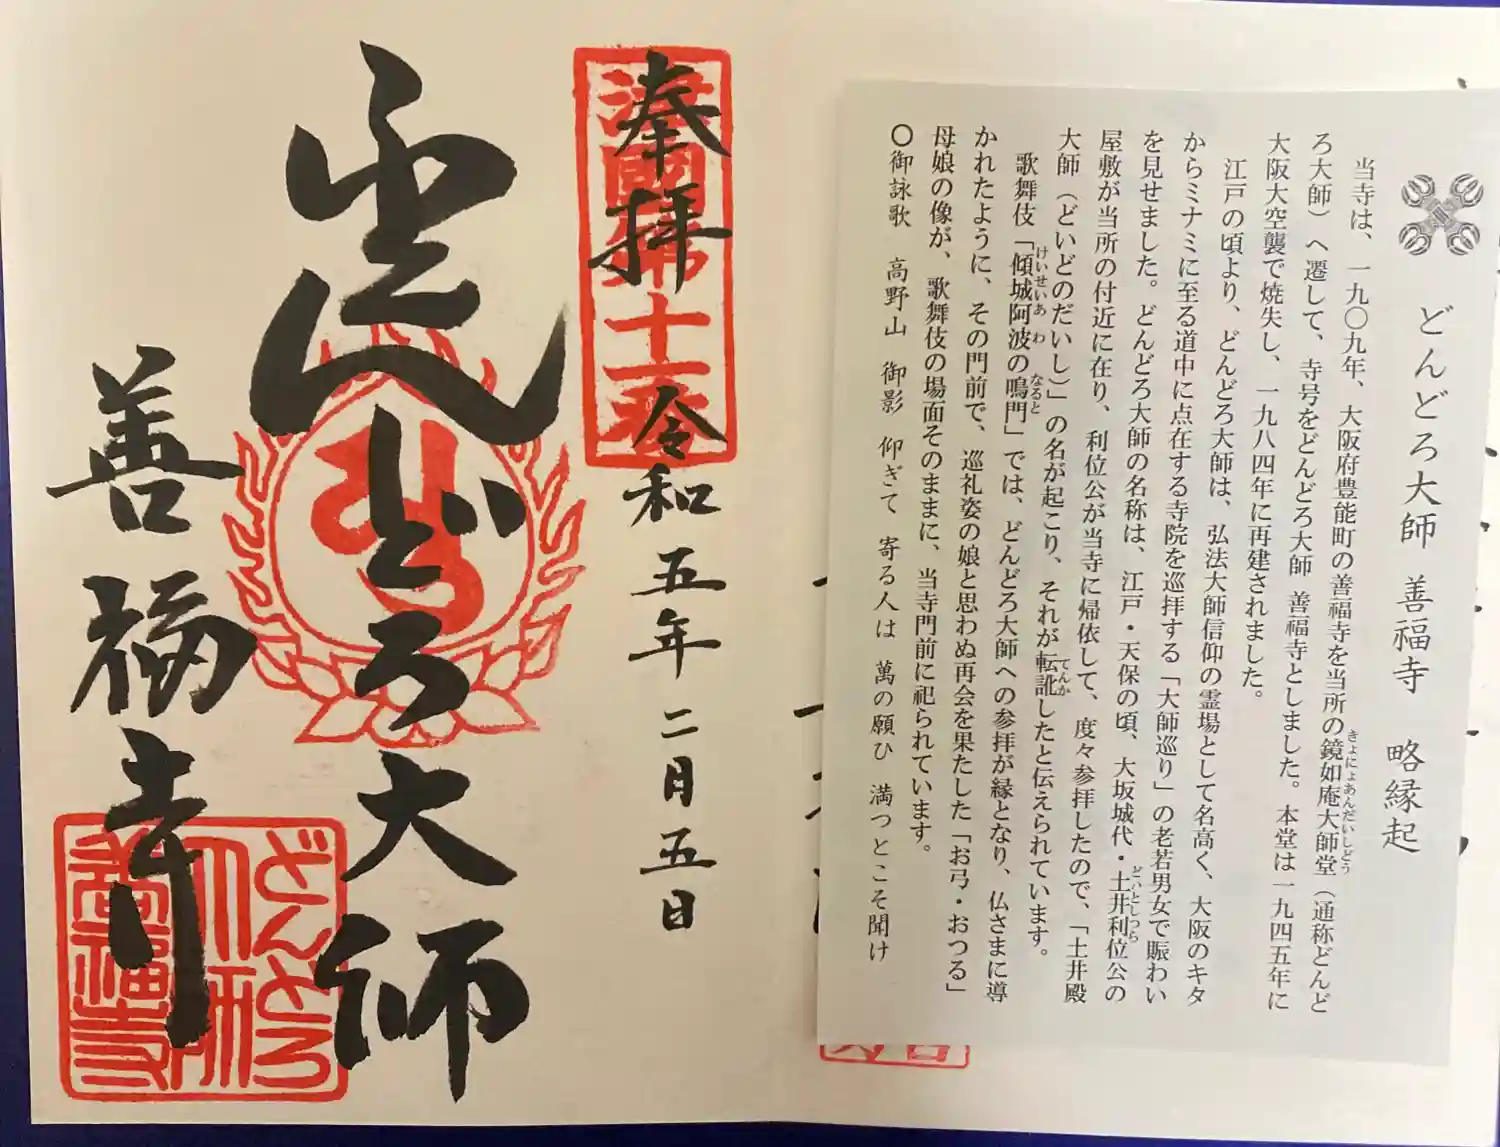 どんどろ大師 善福寺 略縁起
当寺は、一九〇九年、大阪府豊能町の善福寺を当所の鏡如庵大師堂（通称どんど
きよにょあんだいしどう
ろ大師）へ遷して、寺号をどんどろ大師 善福寺としました。本堂は一九四五年に
大阪大空襲で焼失し、一九八四年に再建されました。
江戸の頃より、どんどろ大師は、弘法大師信仰の霊場として名高く、大阪のキタ
からミナミに至る道中に点在する寺院を巡拝する「大師巡り」の老若男女で賑わい
を見せました。どんどろ大師の名称は、江戸・天保の頃、大坂城代・土井利位公の
どいとしつら
屋敷が当所の付近に在り、利位公が当寺に帰依して、度々参拝したので、「土井殿
大師（どいどのだいし）」の名が起こり、それが転訛したと伝えられています。
てんか
歌舞伎「傾城阿波の鳴門」では、どんどろ大師への参拝が縁となり、仏さまに導
けいせいあわ なると
かれたように、その門前で、巡礼姿の娘と思わぬ再会を果たした「お弓・おつる」
母娘の像が、歌舞伎の場面そのままに、当寺門前に祀られています。
〇御詠歌 高野山 御影 仰ぎて 寄る人は 萬の願ひ 満つとこそ聞け
奉拝 令和五年二月五日
どんどろ大師
善福寺
どんどろ
大師
善福寺